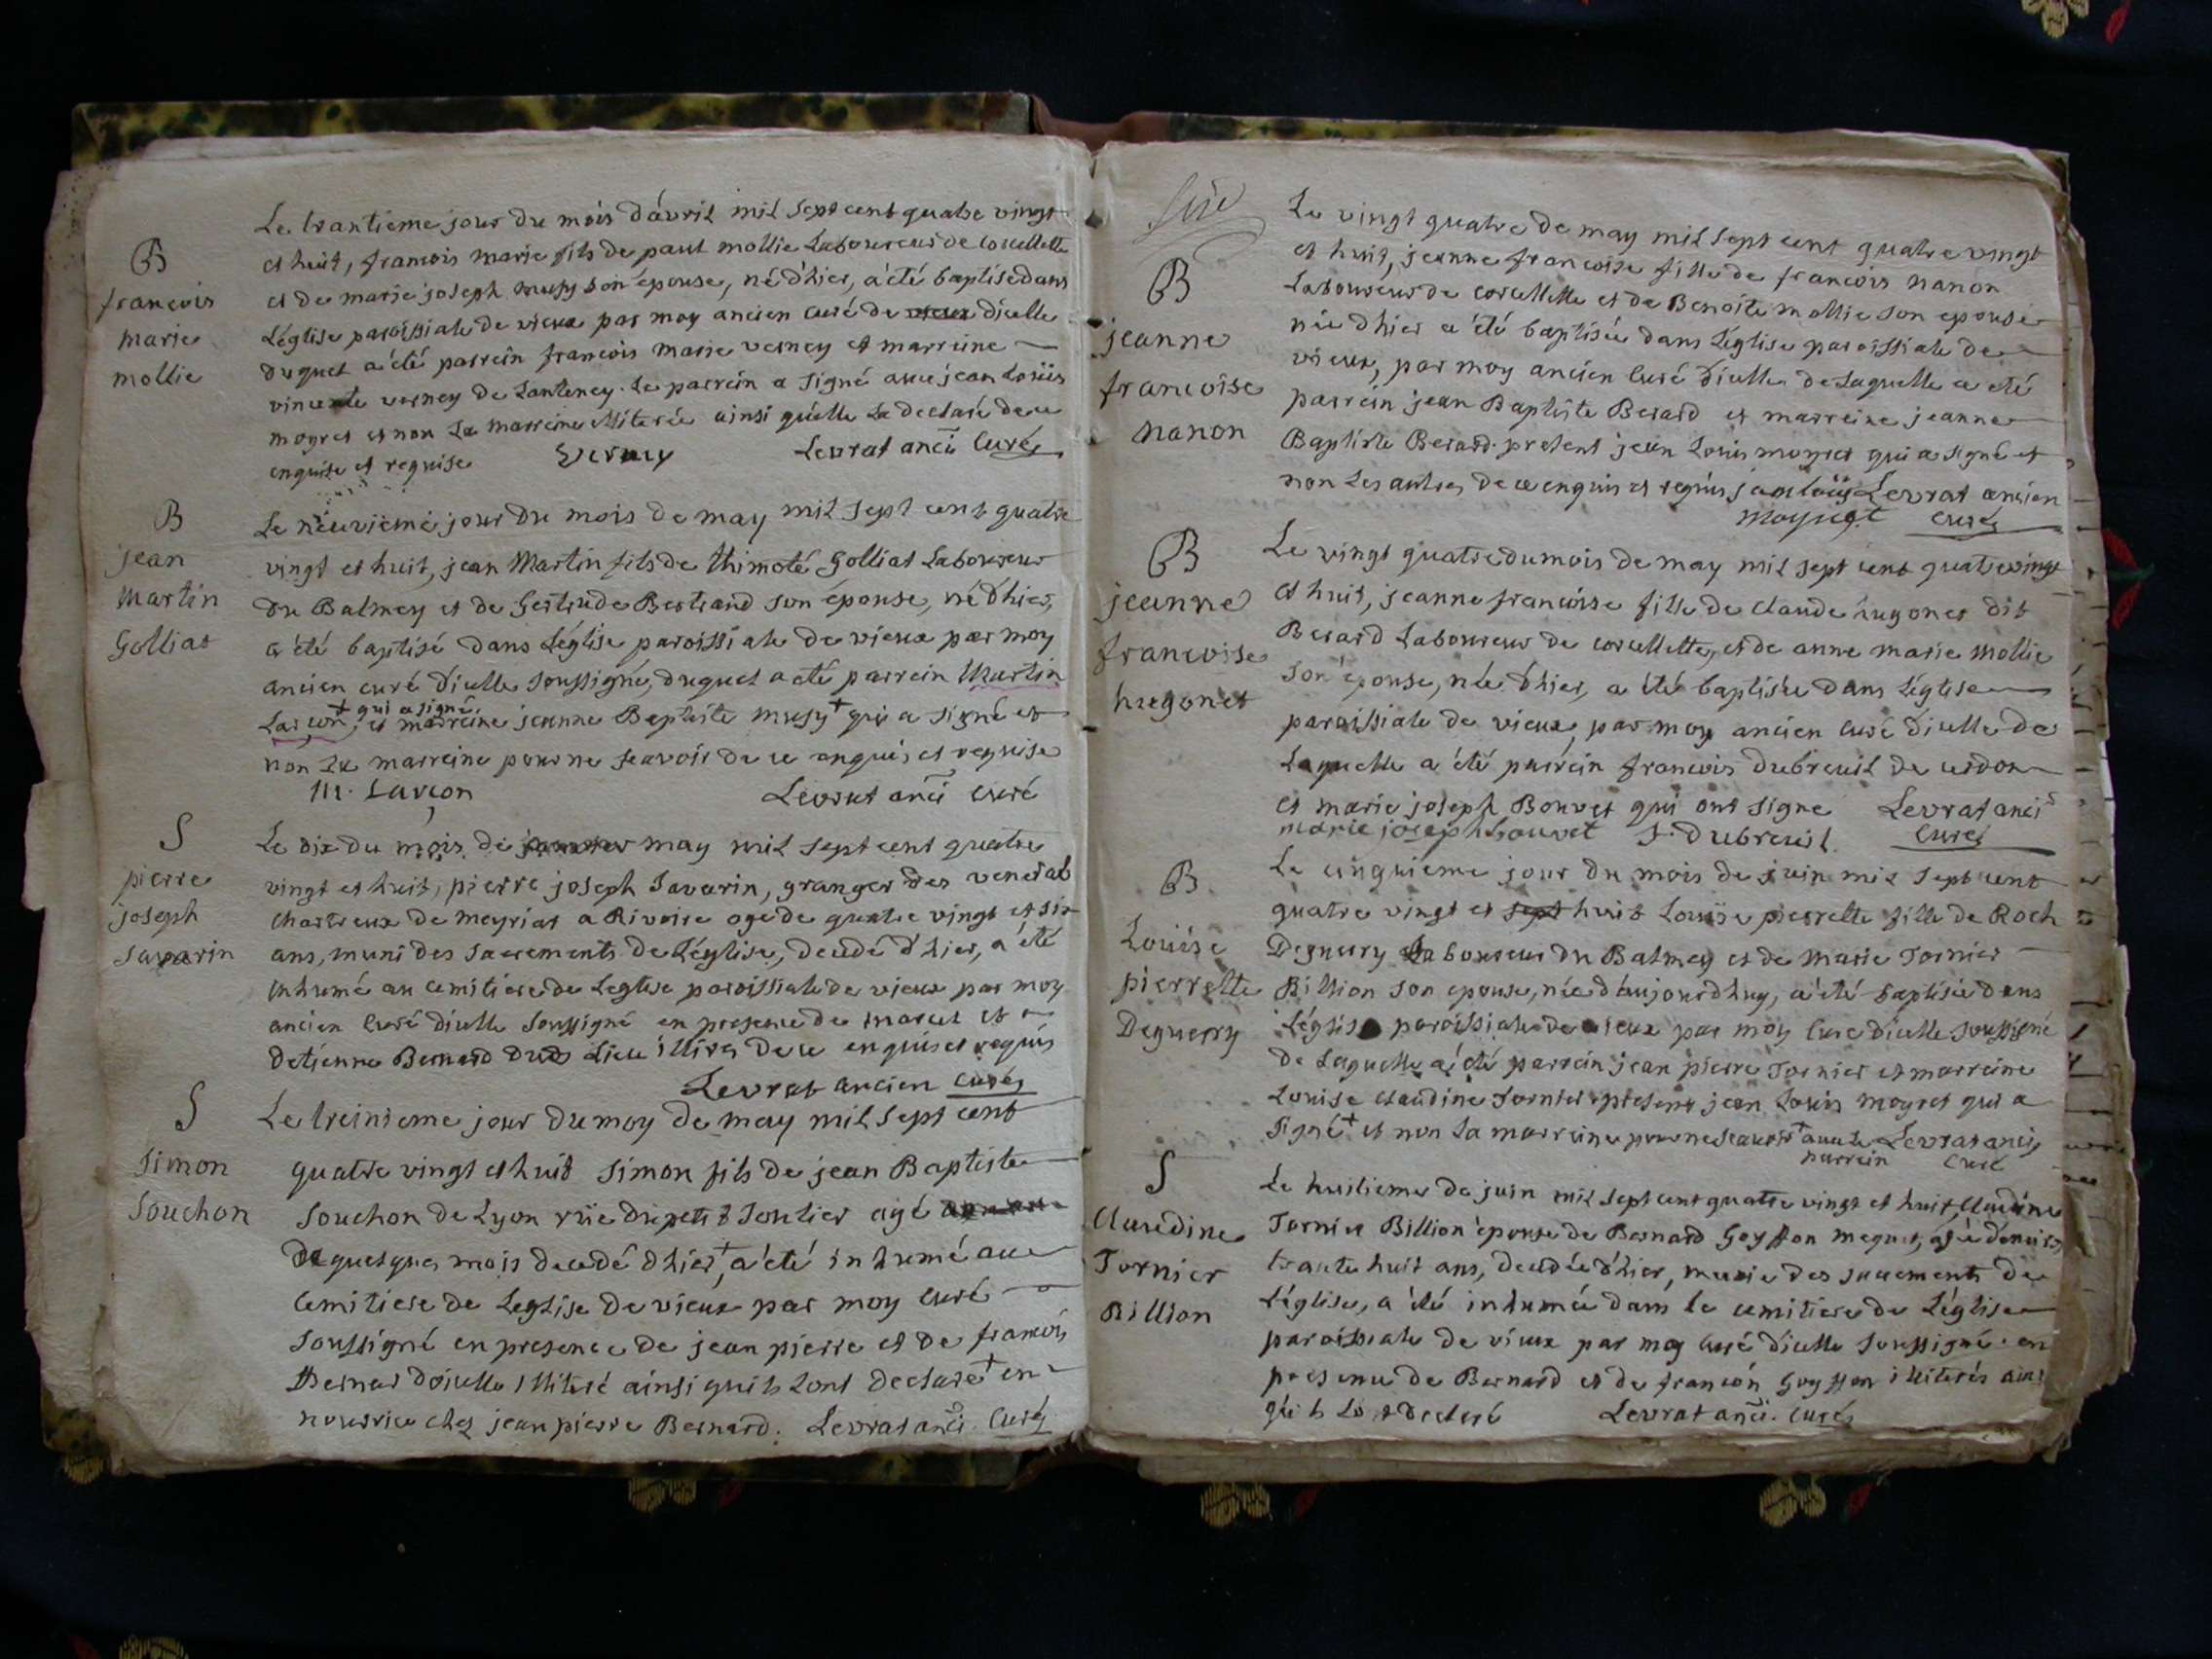 B
francois
marie
mollie
Le trantieme jour du mois d'avril mil sept cent quatre vingt
et huit, francois marie fils de paul mollie Laboureur de corcellette
et de marie joseph musy son épouse, né d'hier, a été baptisé dans
L'église paroissiale de vieux par moy ancien curé d'icelle
duquel a été parrein francois marie verney et marreine
vincente verney de Lanteney. Le parrein a signé avec jean Louis
moyret et non La marreine illiterée ainsi quelle La declaré de ce
enquise et requise Verney Levrat anci Curé
B
jean
Martin
Golliat
Le neuvieme jour du mois de may mil sept cent quatre
vingt et huit, jean Martin fils de thimoté Golliat Laboureur
du Balmey et de Gertrude Bertrand son épouse, né d'hier,
a été baptisé dans L'église paroissiale de vieux par moy
ancien curé d'icelle soussigné, duquel a été parrein Martin
+ qui a signé
Larçon, et marreine jeanne Baptiste musy + qui a signé et
non La marreine pour ne scavoir de ce enquis et requise
M. Larçon Levrat anci curé
S
pierre
joseph
savarin
Le dix du mois de may mil sept cent quatre
vingt et huit, pierre joseph Savarin, granger des venerab
chartreux de meyriat a Rivoire agé de quatre vingt et six
ans, muni des sacrements de L'église, decedé d'hier, a été
inhumé au cemitiere de Leglise paroissiale de vieux par moy
ancien Curé d'icelle soussigné en presence de marcel et
detienne Bernard dud Lieu illiters de ce enquis et requis
Levrat ancien curé
S
Simon
Souchon
Le treintieme jour du moy de may mil sept cent
quatre vingt et huit Simon fils de jean Baptiste
Souchon de Lyon rüe du petit Soulier agé
de quesques mois decedé d'hier +, a été inhumé au
cemitiere de Leglise de vieux par moy curé
Soussigné en presence de jean pierre et de francois
Bernard d'icelle illiteré ainsi quils Lont declaré + en
nourrice chez jean pierre Bernard. Levrat anci. Curé
B
jeanne
francoise
nanon
Le vingt quatre de may mil sept cent quatre vingt
et huit, jeanne francoise fille de francois nanon
Laboureur de corcellette et de Benoite mollie son epouse
née d'hier a été baptisée dans L'église paroissiale de
vieux, par moy ancien Curé d'icelle de Laquelle a été
parrein jean Baptiste Berard et marreine jeanne
Baptiste Berard. present jean Louis moyret qui a signé et
non Les autres de ce enquis et requis jean loüis Levrat ancien
moyret curé
B
jeanne
francoise
hugonet
Le vingt quatre du mois de may mil sept cent quatre vingt
et huit, jeanne francoise fille de claude hugonet dit
Berard Laboureur de corcellette, et de anne marie mollie
son épouse, née d'hier, a été baptisée dans L'église
paroissiale de vieux, par moy ancien curé d'icelle de
Laquelle a été parrein francois dubreuil de cerdon
et marie joseph Bouvet qui ont signe Levrat anci
marie joseph bouvet f. dubreuil. curé
B
Louise
pierrette
Deguerry
Le cinquieme jour du mois de juin mil sept cent
quatre vingt et sept huit Louise pierrette fille de Roch
Deguerry Laboureur du Balmey et de Marie Tornier
Billion son epouse, née d'aujourdhuy, a été baptisée dans
L'église paroissiale de vieux par moy curé d'icelle soussigné
de Laquelle a été parrein jean pierre Tornier et marreine
Louise claudine Tornier present jean Louis moyret qui a
signé + et non La marreine pour ne scavoir + avec le Levrat anci
parrein curé
S
Claudine
Tornier
Billion
Le huitieme de juin mil sept cent quatre vingt et huit, claudine
Tornier Billion épouse de Bernard Goyffon meguet, agée d'environ
trante huit ans, decedée d'hier, munie des sacrements de
L'église, a été inhumée dans le cemitiere de L'église
paroissiale de vieux par moy curé d'icelle soussigné. en
presence de Bernard et de francois Goyffon illiterés ainsi
qu'ils Lont declaré Levrat anci. Curé